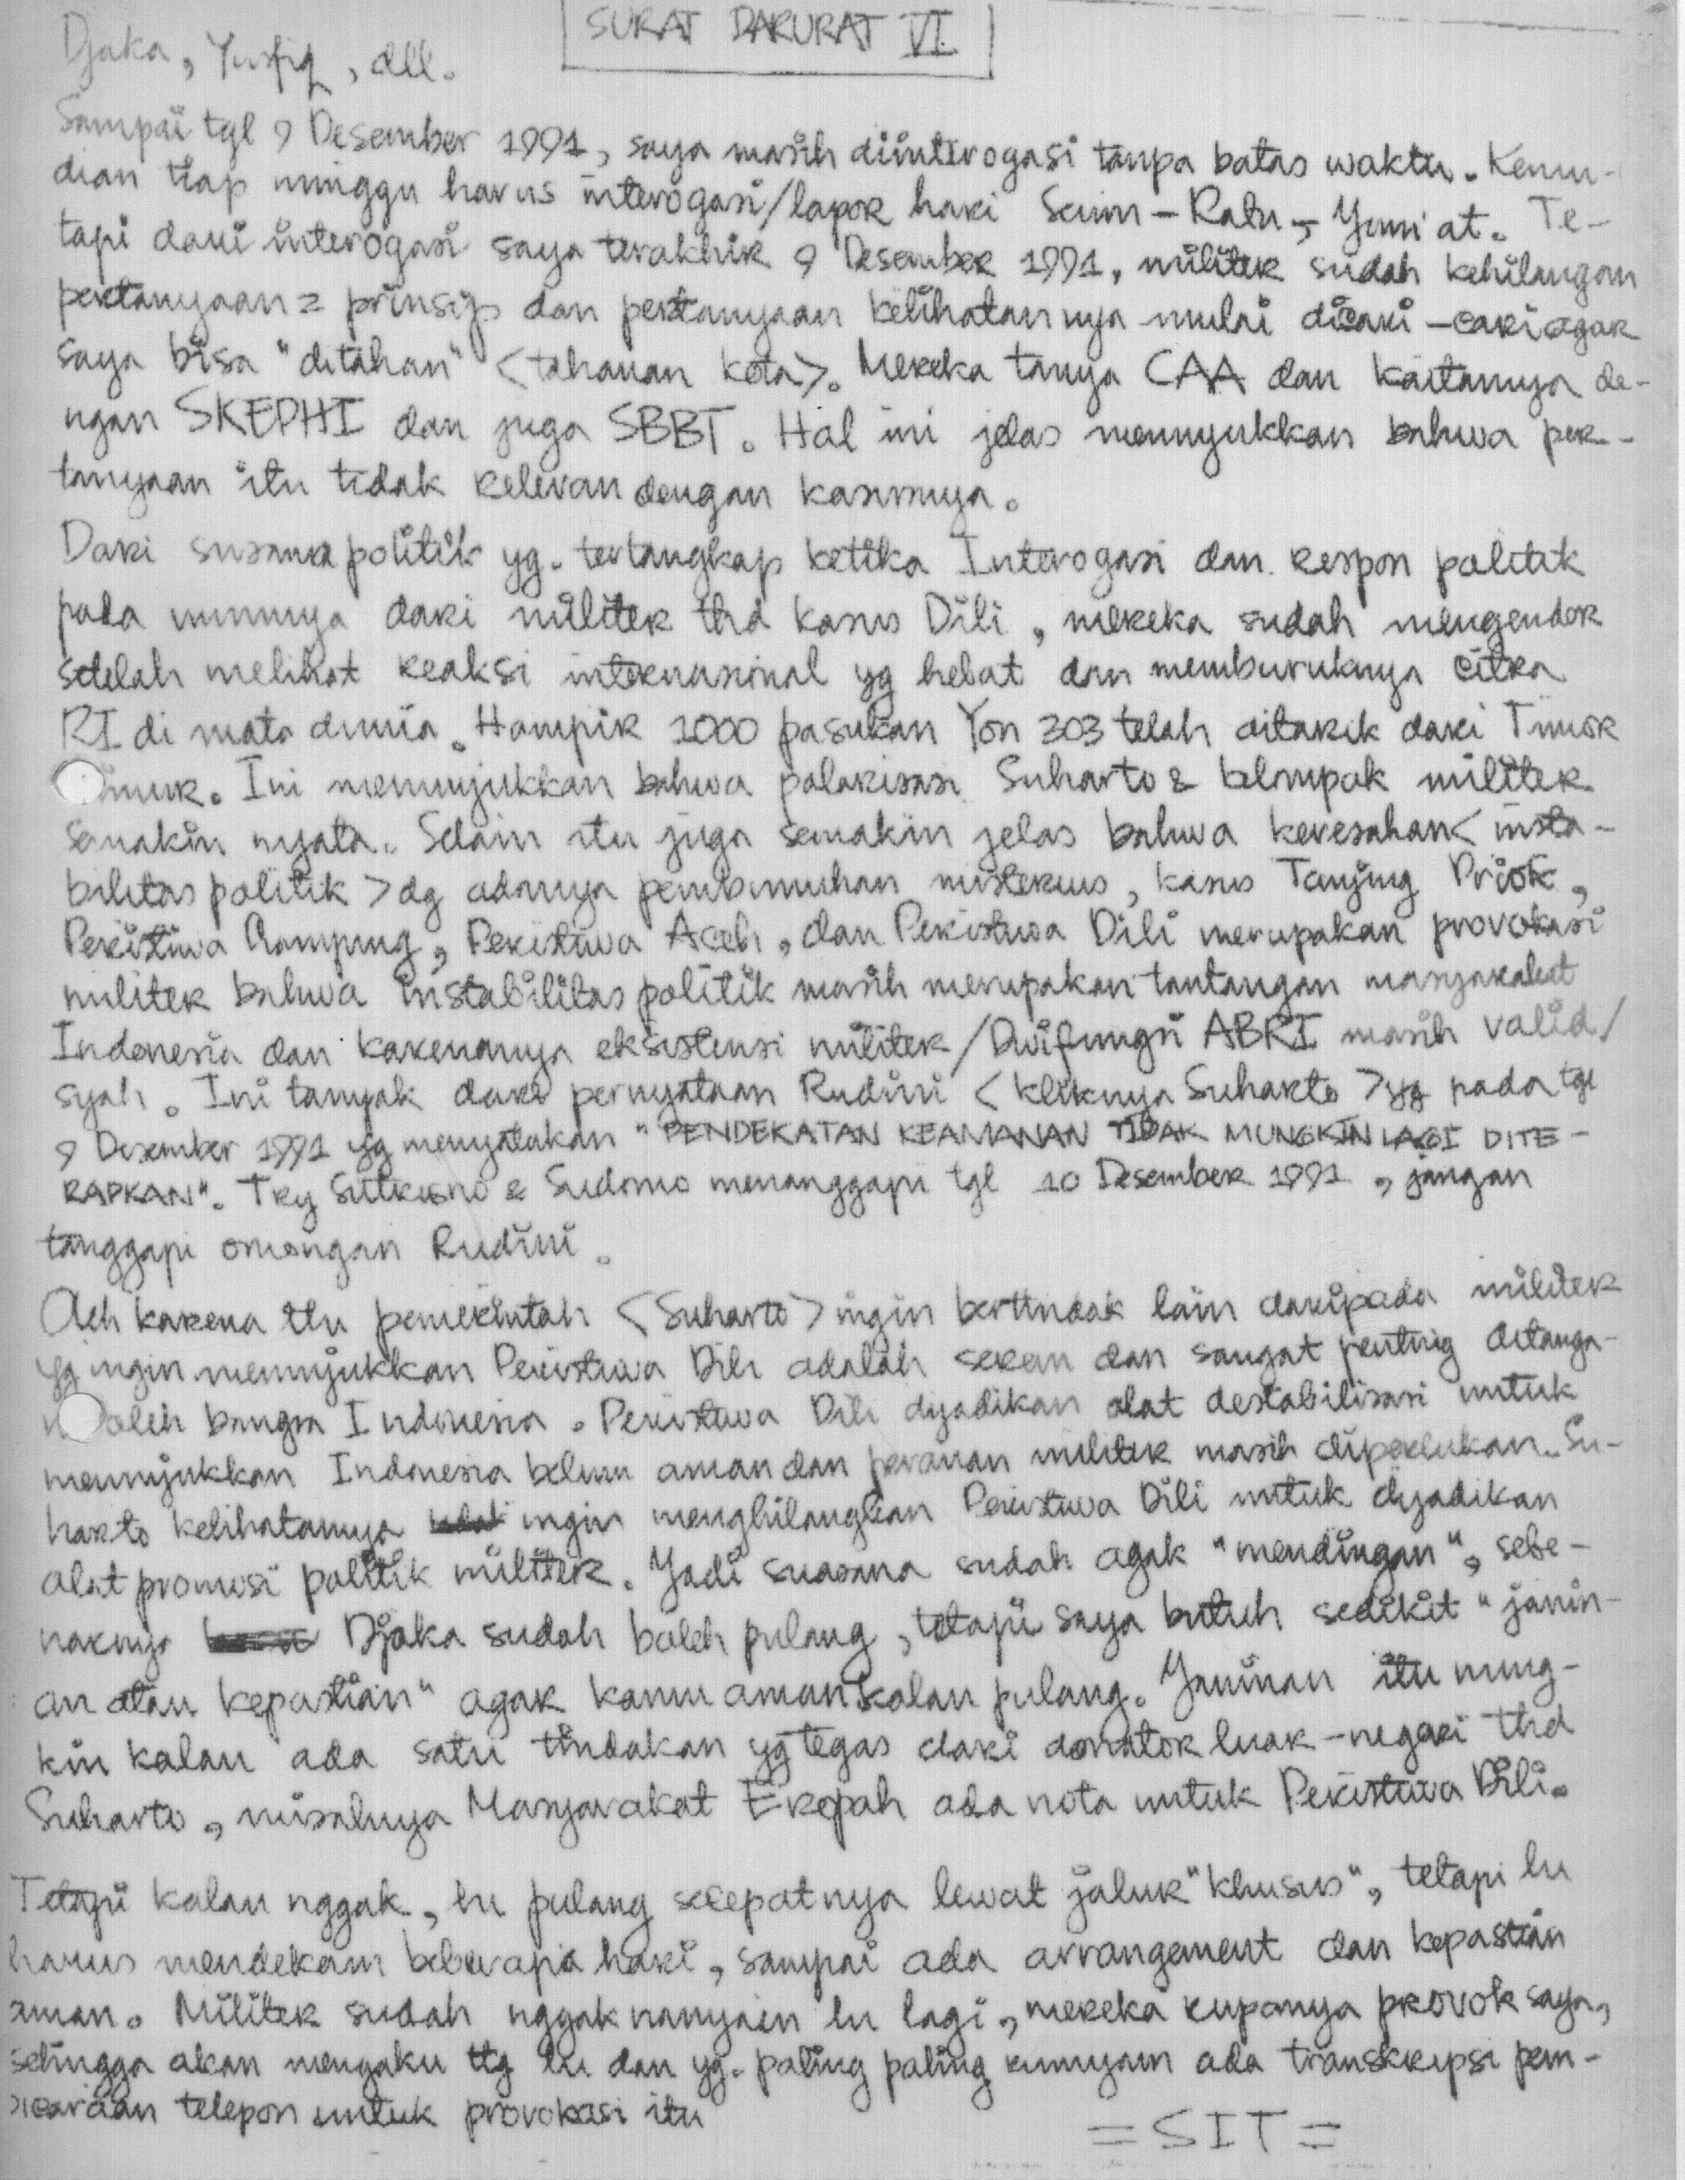 SURAT DARURAT VI
Djaka, Yusfiq, dll.
Sampai tgl 9 Desember 1991, saya masih diinterogasi tanpa batas waktu. Kemu-
dian tiap minggu harus interogasi/lapor hari Senin - Rabu - Jum'at. Te-
tapi dari interogasi saya terakhir 9 Desember 1991, militer sudah kehilangan
pertanyaan2 prinsip dan pertanyaan kelihatannya mulai dicari-cari agar
saya bisa "ditahan" <tahanan kota>. Mereka tanya CAA dan kaitannya de-
ngan SKEPHI dan juga SBBT. Hal ini jelas menunjukkan bahwa per-
tanyaan itu tidak relevan dengan kasusnya.
Dari suasana politik yg. tertangkap ketika Interogasi dan respon politik
pada umumnya dari militer thd kasus Dili, mereka sudah mengendor
setelah melihat reaksi internasional yg hebat dan memburuknya citra
RI di mata dunia. Hampir 1000 pasukan Yon 303 telah ditarik dari Timor
imur. Ini menunjukkan bahwa polarisasi Suharto & kelompok militer
semakin nyata. Selain itu juga semakin jelas bahwa keresahan <insta-
bilitas politik> dg adanya pembunuhan misterius, kasus Tanjung Priok,
Peristiwa Lampung, Peristiwa Aceh, dan Peristiwa Dili merupakan provokasi
militer bahwa instabilitas politik masih merupakan tantangan masyarakat
Indonesia dan karenanya eksistensi militer/Dwifungsi ABRI masih valid/
syah. Ini tampak dari pernyataan Rudini <kliknya Suharto> yg pada tgl
9 Desember 1991 yg menyatakan "PENDEKATAN KEAMANAN TIDAK MUNGKIN LAGI DITE-
RAPKAN". Try Sutrisno & Sudomo menanggapi tgl 10 Desember 1991, jangan
tanggapi omongan Rudini.
Oleh karena itu pemerintah <Suharto> ingin bertindak lain daripada militer
yg ingin menunjukkan Peristiwa Dili adalah serem dan sangat penting ditanga-
n oleh bangsa Indonesia. Peristiwa Dili dijadikan alat destabilisasi untuk
menunjukkan Indonesia belum aman dan peranan militer masih diperlukan. Su-
harto kelihatannya ingin menghilangkan Peristiwa Dili untuk dijadikan
alat promosi politik militer. Jadi suasana sudah agak "mendingan", sebe-
narnya Djaka sudah boleh pulang, tetapi saya butuh sedikit "jamin-
an atau kepastian" agar kamu aman kalau pulang. Jaminan itu mung-
kin kalau ada satu tindakan yg tegas dari donator luar-negeri thd
Suharto, misalnya Masyarakat Eropah ada nota untuk Peristiwa Dili.
Tetapi kalau nggak, lu pulang secepatnya lewat jalur "khusus", tetapi lu
harus mendekam beberapa hari, sampai ada arrangement dan kepastian
aman. Militer sudah nggak nanyain lu lagi, mereka rupanya provok saya,
sehingga akan mengaku ttg lu dan yg. paling paling rumyam ada transkripsi pem-
bicaraan telepon untuk provokasi itu
= SIT =